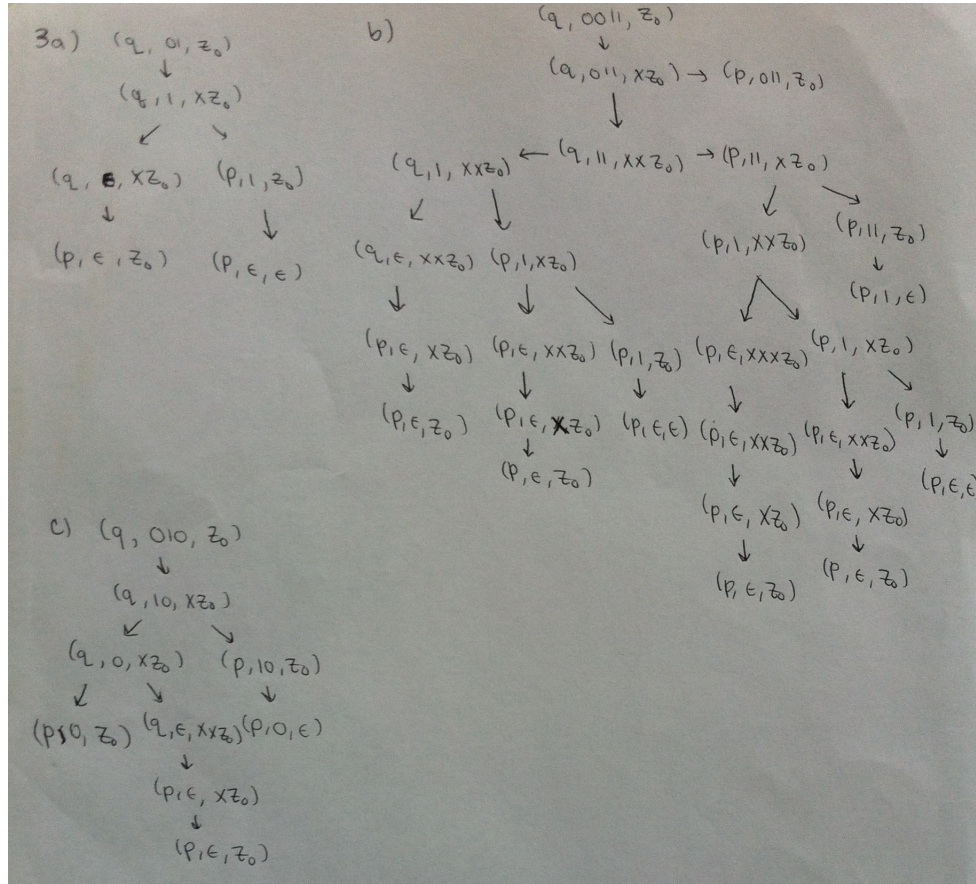 3a) (q, 01, Z₀)
↓
(q, 1, XZ₀)
↙ ↘
(q, ε, XZ₀) (p, 1, Z₀)
↓ ↓
(p, ε, Z₀) (p, ε, ε)
b) (q, 0011, Z₀)
↓
(q, 011, XZ₀) → (p, 011, Z₀)
↓
(q, 1, XXZ₀) ← (q, 11, XXZ₀) → (p, 11, XZ₀)
↙ ↘ ↓ ↘
(q, ε, XXZ₀) (p, 1, XZ₀) (p, 1, XXZ₀) (p, 11, Z₀)
↓
(p, 1, ε)
↓ ↓ ↘ ↙ ↘
(p, ε, XZ₀) (p, ε, XXZ₀) (p, 1, Z₀) (p, ε, XXXZ₀) (p, 1, XZ₀)
↓ ↓ ↓ ↓ ↓ ↘
(p, ε, Z₀) (p, ε, XZ₀) (p, ε, ε) (p, ε, XXZ₀) (p, ε, XXZ₀) (p, 1, Z₀)
↓ ↓ ↓ ↓
(p, ε, Z₀) (p, ε, XZ₀) (p, ε, XZ₀) (p, ε, ε
↓ ↓
(p, ε, Z₀) (p, ε, Z₀)
c) (q, 010, Z₀)
↓
(q, 10, XZ₀)
↙ ↘
(q, 0, XZ₀) (p, 10, Z₀)
↙ ↘ ↓
(p, 0, Z₀) (q, ε, XXZ₀) (p, 0, ε)
↓
(p, ε, XZ₀)
↓
(p, ε, Z₀)